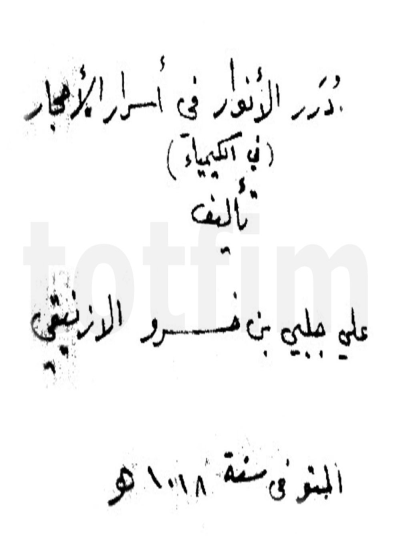 درر الأنوار في أسرار الأحجار
(في الكيمياء)
تأليف
علي جلبي بن خسرو الازنيقي
المتوفى سنة ١٠١٨ هـ
totfim